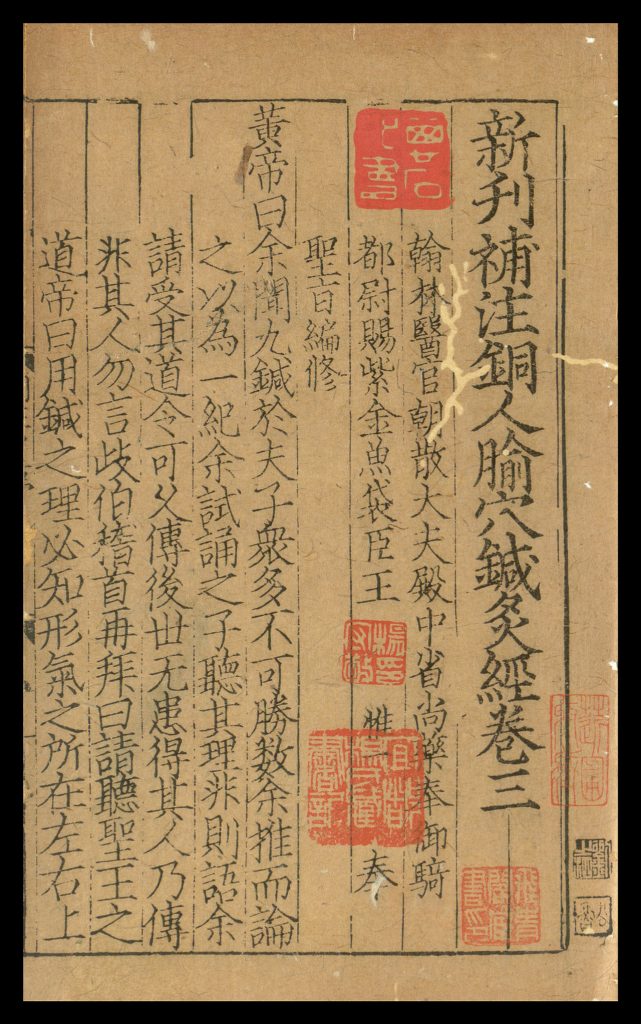 新刋補注銅人腧穴鍼灸經卷三
翰林醫官朝散大夫殿中省尚藥奉御騎
都尉賜紫金魚袋臣王 惟一 奉
聖旨編修
黃帝曰余聞九鍼於夫子衆多不可勝数余推而論
之以為一紀余試誦之子聽其理非則語余
請受其道令可久傳後世无患得其人乃傳
非其人勿言歧伯稽首再拜曰請聽聖王之
道帝曰用鍼之理必知形氣之所在左右上